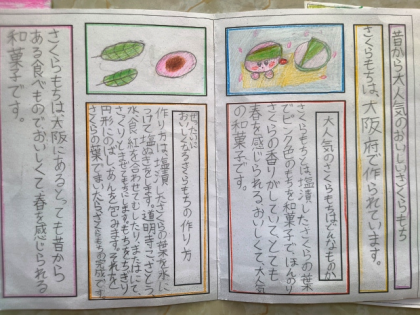 昔から大人気のおいしいさくらもち
さくらもちは、大阪府で作られています。
大人気のさくらもちはどんなものか
さくらもちとは、塩漬したさくらの葉
でピンク色のもちを和菓子で、ほんのり
さくらの香りがしていて、とても
春を感じられる、おいしくて、大人気
の和菓子です。
ぜったいに
おいしくなるさくらもちの作り方
作り方は、塩漬したさくらの葉を水に
つけて塩ぬきをします。道明寺こ、さとう、
水、食紅を合わせてむしたり
さっくりとまぜてもちにします。もちをちぎり
円形にのばし、あんを包みます。それを
さくらの葉でまいたらさくらもちの完成です。
さくらもちは大阪にあるとっても昔から
ある食べもので、おいしくて、春を感じられる
和菓子です。